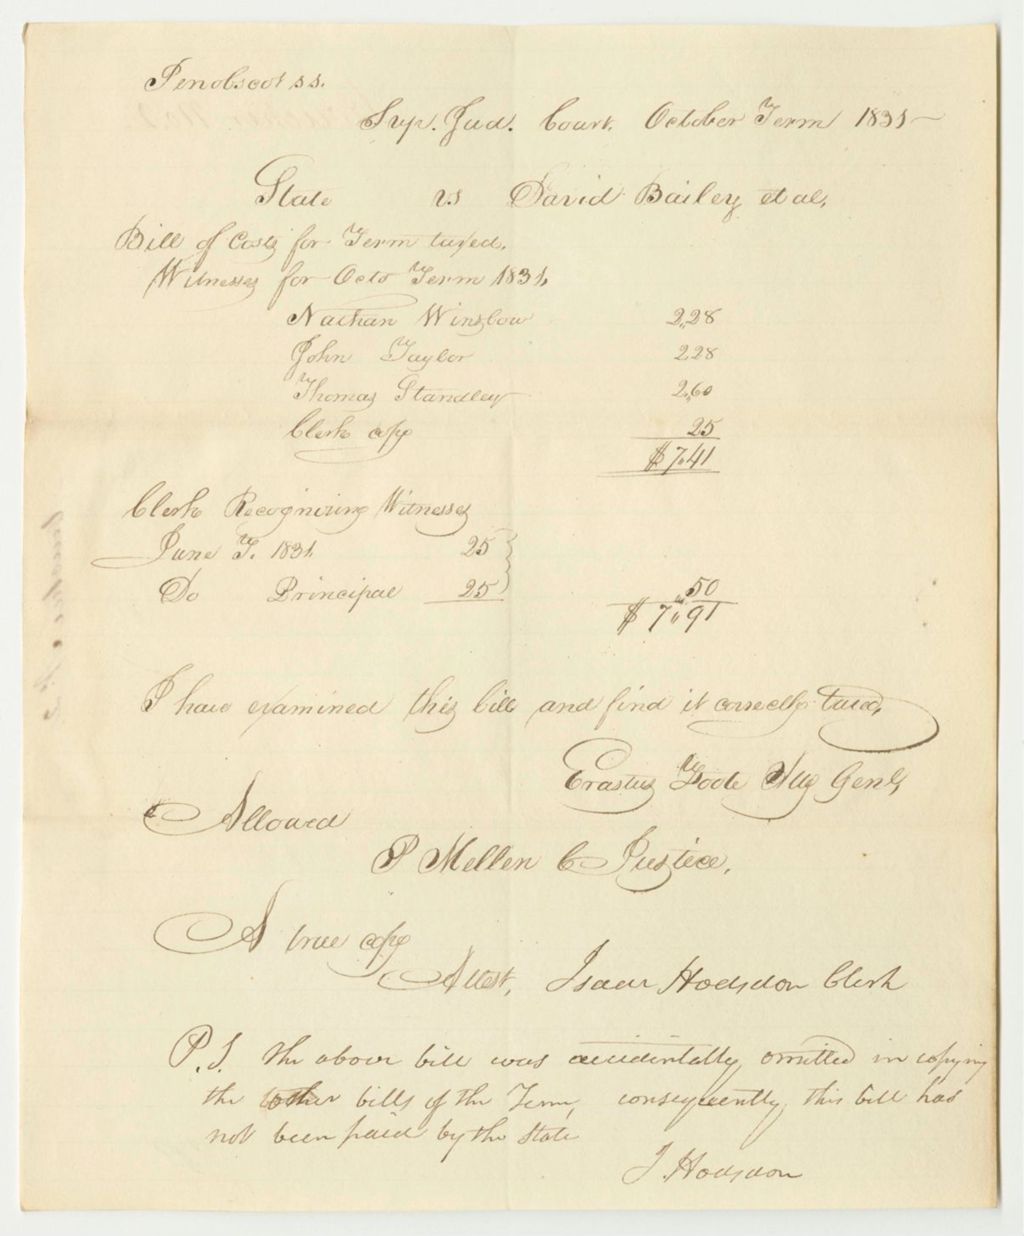 Penobscot ss.
Sup. Jud. Court. October Term 1831
State vs David Bailey et al.
Bill of Costs for Term taxed.
Witnesses for Octo Term 1831,
Nathan Winslow 2,28
John Taylor 2 28
Thomas Standley 2,60
Clerk copy 25
$ 7.41
Clerk Recognizing Witnesses
June T. 1831. 25
Do Principal 25 ,50
$ 7,,91
I have examined this bill and find it correctly taxed,
Erastus Foote Atty Genl,
Allowed
P Mellen C Justice.
A true copy
Attest, Isaac Hodsdon Clerk
P.S. The above bill was accidentally omitted in copying
the other bills of the Term, consequently, this bill has
not been paid by the State
I. Hodsdon